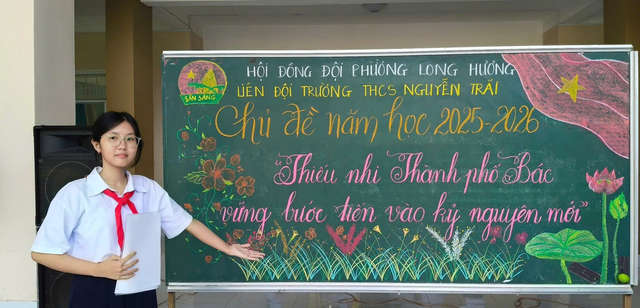 HỘI ĐỒNG ĐỘI PHƯỜNG LONG HƯƠNG
LIÊN ĐỘI TRƯỜNG THCS NGUYỄN TRÃI
SẴN SÀNG
Chủ đề năm học 2025-2026
"Thiếu nhi Thành phố Bác
vững bước tiến vào kỷ nguyên mới"